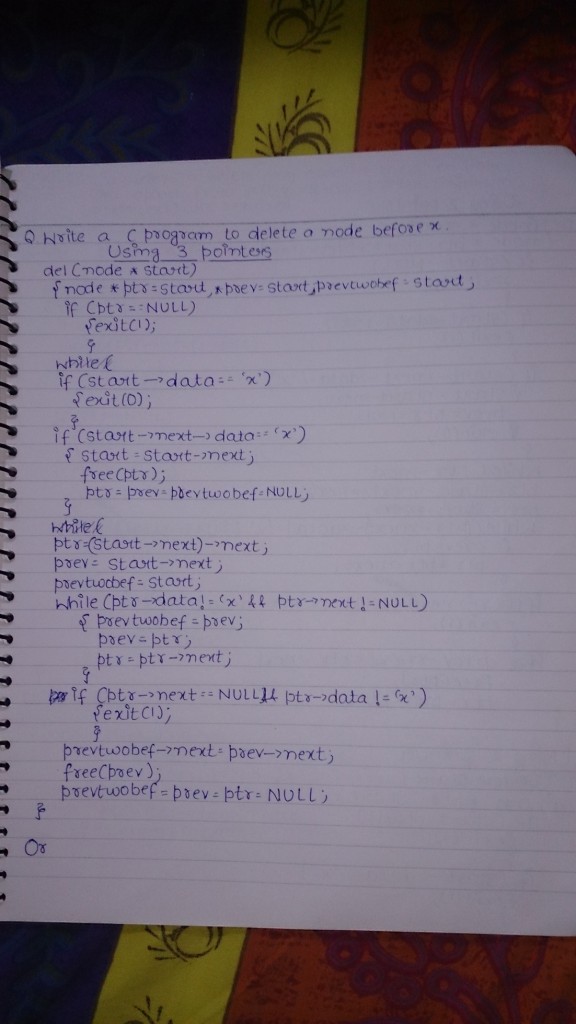 Q Write a C program to delete a node before x.
Using 3 pointers
del (node * start)
{ node * ptr = start, * prev = start, prevtwobef = start;
if (ptr == NULL)
{exit(1);
}
while(
if (start → data == 'x')
{exit(0);
}
if (start → next → data == 'x')
{ start = start → next;
free(ptr);
ptr = prev = prevtwobef = NULL;
}
while(
ptr = (start → next) → next;
prev = start → next;
prevtwobef = start;
while (ptr → data != 'x' && ptr → next != NULL)
{ prevtwobef = prev;
prev = ptr;
ptr = ptr → next;
}
if (ptr → next == NULL && ptr → data != 'x')
{exit(1);
}
prevtwobef → next = prev → next;
free(prev);
prevtwobef = prev = ptr = NULL;
}
Or